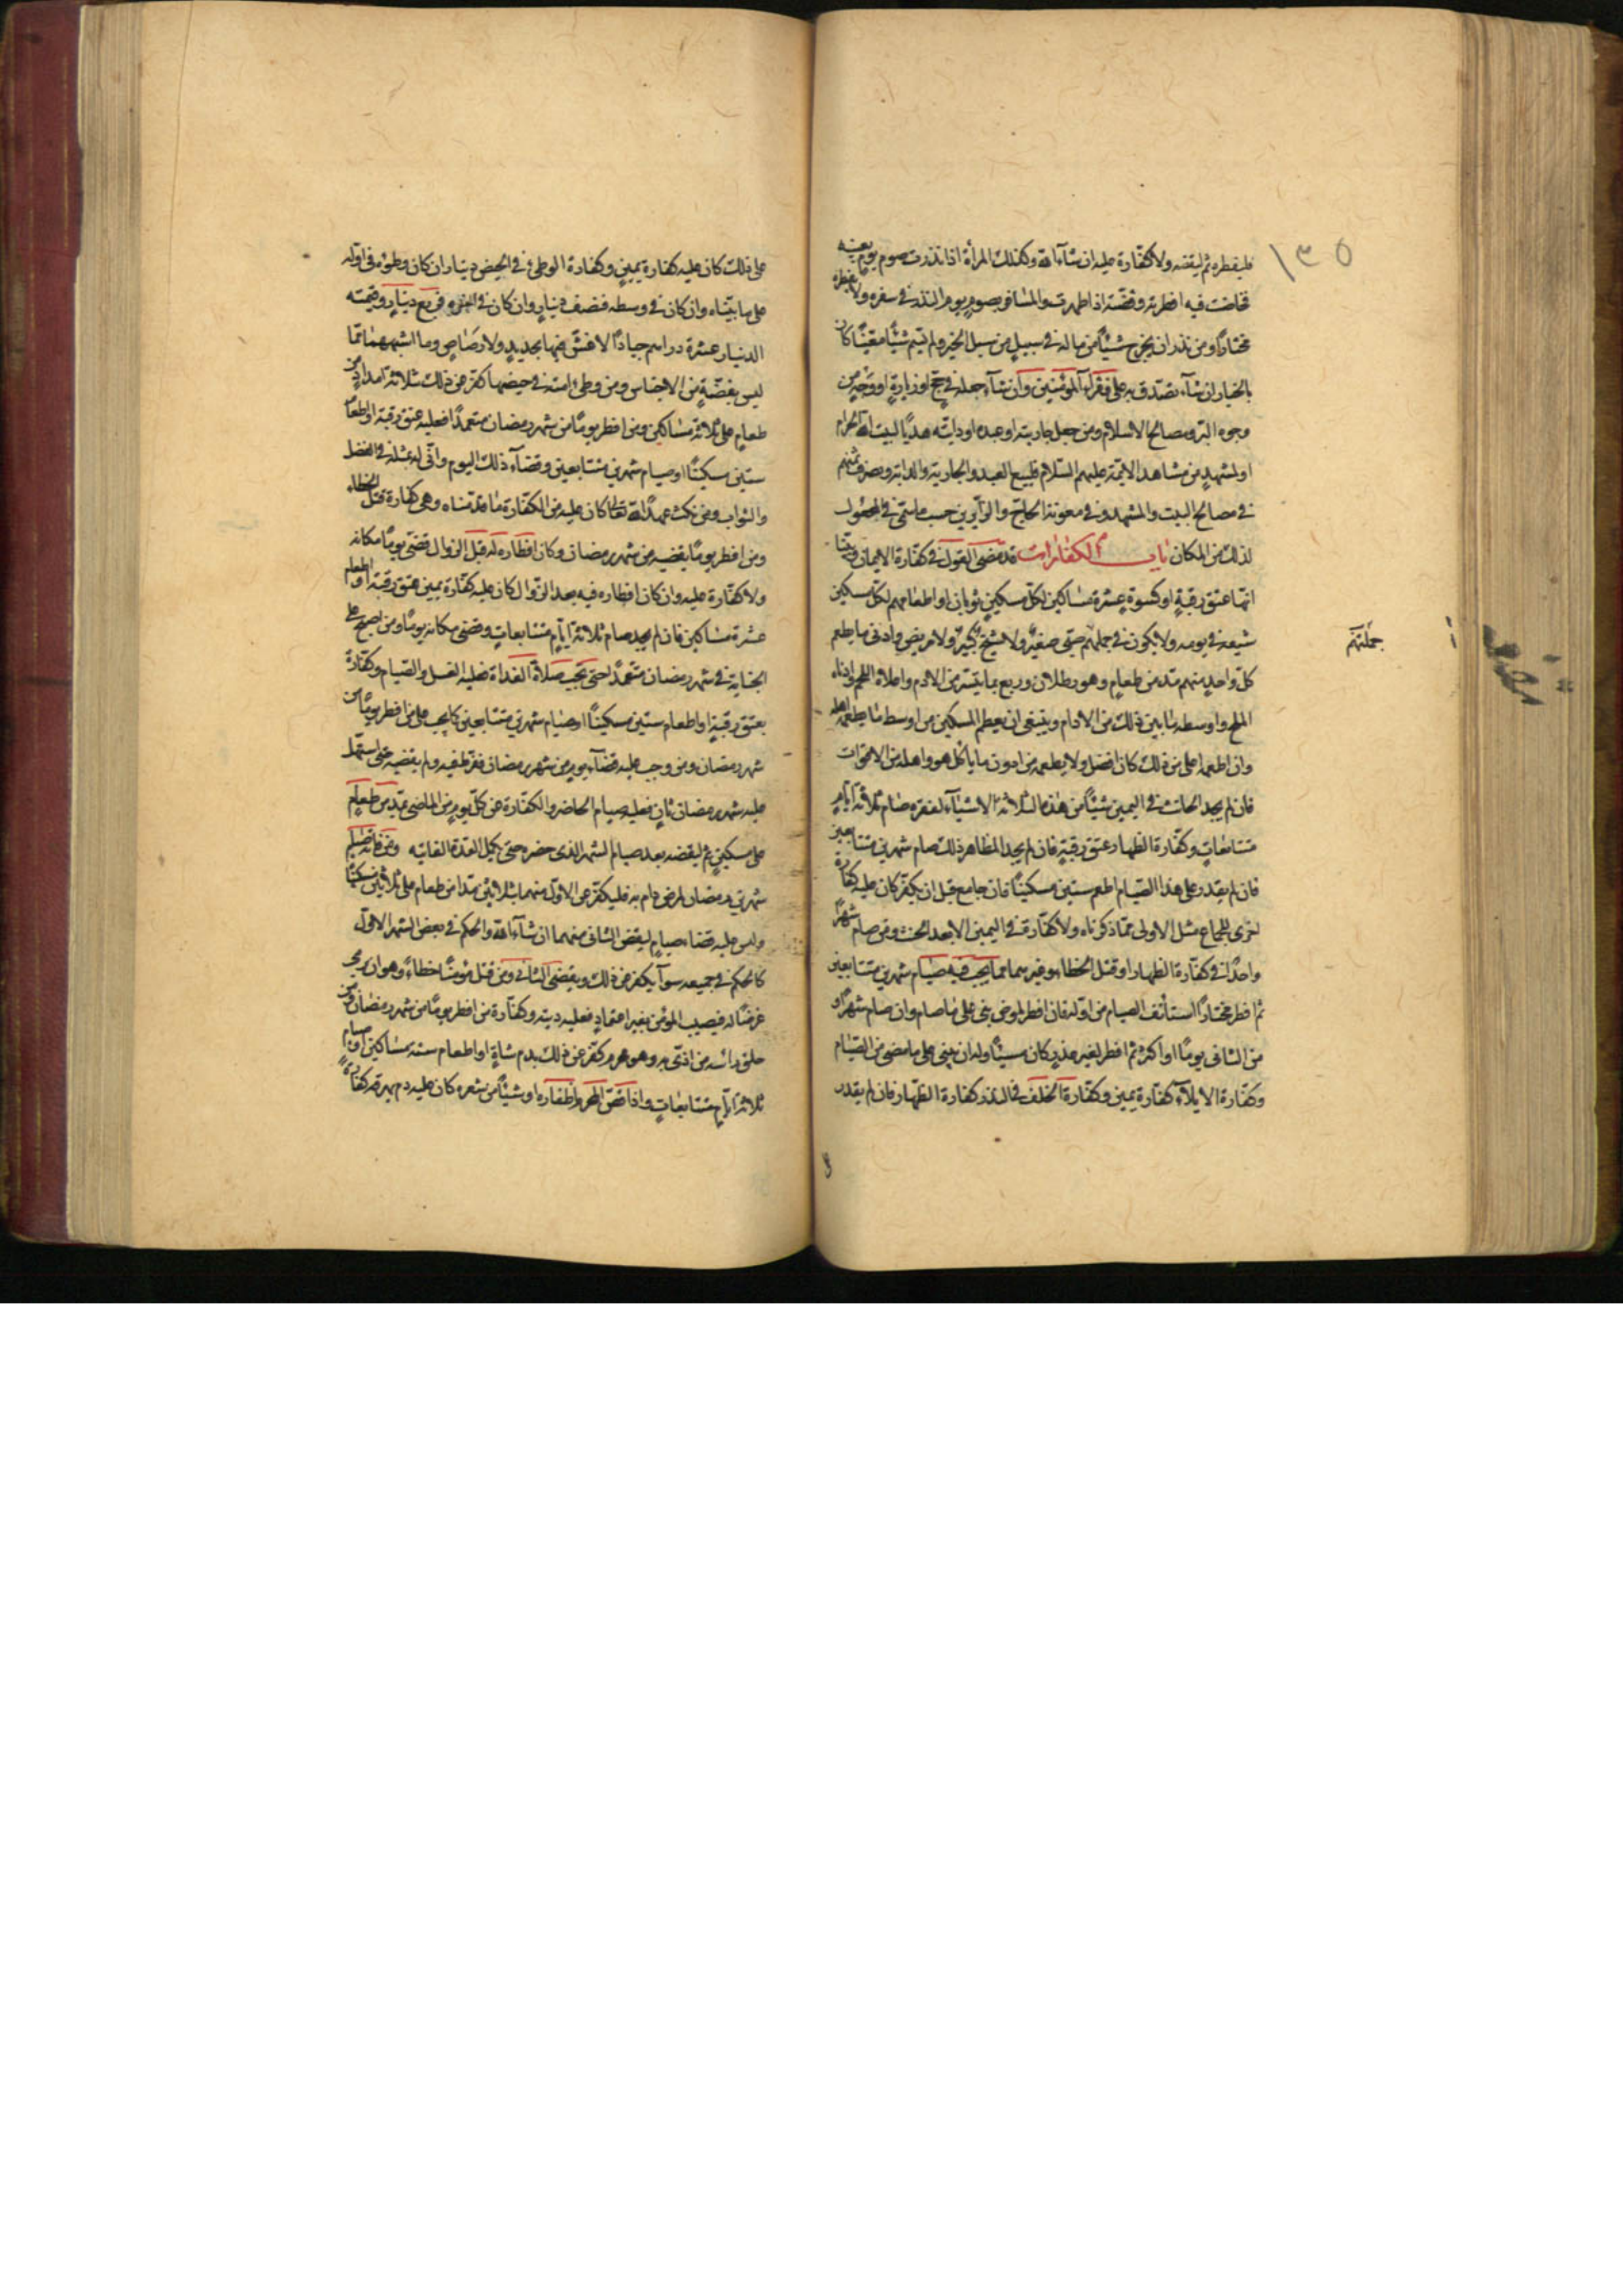 ١٣٥
فليفطره ثم ليقضه ولا كفارة عليه ان شآء الله وكذلك المرأة اذا نذرت صوم يوم بعينه
فحاضت فيه افطرته وقضته اذا طهرت والمسافر يصوم يوم النذر في سفره ولا يفطره
مختارًا ومن نذر ان يخرج شيئًا من ماله في سبيلٍ من سبل الخير ولم يسم شيئًا معينًا كان
بالخيار ان شآء تصدق به على فقرآء المؤمنين وان شآء جعله في حج او زيارةٍ او وجهٍ من
وجوه البر ومصالح الاسلام ومن جعل جاريته او عبده او دابته هديًا لبيت الله الحرام
او لمشهدٍ من مشاهد الائمة عليهم السلام فليبع العبد والجارية والدابة ويصرف ثمنهم
في مصالح البيت والمشهد وفي معونة الحاج والزآيرين حسب ما سمى في المجعول
لذلك من المكان باب الكفارات قد مضى القول في كفارة الايمان وبينا
انها عتق رقبةٍ او كسوة عشرة مساكين لكل مسكينٍ ثوبان او اطعامهم لكل مسكين
شبعه في يومه ولا يكون في جملتهم صبى صغيرٌ ولا شيخ كبيرٌ ولا مريض وادنى ما يطعم
جملتهم
كل واحدٍ منهم مد من طعام وهو رطلان وربع بما تيسر من الادم واعلاه اللحم وادناه
الملح واوسطه ما بين ذلك من الادام وينبغى ان يعطم المسكين من اوسط ما يطعم اهله
وان اطعمه اعلى من ذلك كان افضل ولا يطعمه من ادون ما يأكل هو واهله من الاقوات
فان لم يجد الحانث في اليمين شيئًا من هذه الثلاثة الاشيآء لفقره صام ثلاثة ايامٍ
متتابعاتٍ وكفارة الظهار عتق رقبةٍ فان لم يجد المظاهر ذلك صام شهرين متتابعين
فان لم يقدر على هذا الصيام اطعم ستين مسكينًا فان جامع قبل ان يكفر كان عليه كفارة
اخرى للجماع مثل الاولى مما ذكرناه ولا كفارة في اليمين الا بعد الحنث ومن صام شهرًا
واحدًا في كفارة الظهار او قتل الخطاء وغيرهما مما يجب فيه صيام شهرين متتابعين
ثم افطر مختارًا استأنف الصيام من اوله فان افطر لمرض بنى على ما صام وان صام شهرًا و
من الثانى يومًا او اكثر ثم افطر لغير عذرٍ كان مسيئًا وله ان يبنى على ما مضى من الصيام
وكفارة الايلآء كفارة يمين وكفارة الخلف في النذر كفارة الظهار فان لم يقدر
على ذلك كان عليه كفارة يمينٍ وكفارة الوطئ في الحيض دينار ان كان وطؤه في اوله
على ما بيناه وان كان في وسطه فنصف دينارٍ وان كان في اخره فربع دينارٍ وقيمته
الدينار عشرة دراهم جيادًا لا غش فيها بحديدٍ ولا رصاصٍ وما اشبههما مما
ليس بفضةٍ من الاجناس ومن وطئ امته في حيضها كفر عن ذلك بثلاثة امدادٍ من
طعامٍ على ثلاثة مساكين ومن افطر يومًا من شهر رمضان متعمدًا فعليه عتق رقبة او اطعام
ستين مسكينًا او صيام شهرين متتابعين وقضآء ذلك اليوم وانّى له بمثله في الفضل
والثواب ومن نكث عهدًا لله تعالى كان عليه من الكفارة ما قدمناه وهى كفارة قتل الخطاء
ومن افطر يومًا يقضيه من شهر رمضان وكان افطاره له قبل الزوال قضى يومًا مكانه
ولا كفارة عليه وان كان افطاره فيه بعد الزوال كان عليه كفارة يمين عتق رقبة او اطعام
عشرة مساكين فان لم يجد صام ثلاثة ايامٍ متتابعاتٍ وقضى مكانه يومًا ومن اصبح على
الجنابة في شهر رمضان متعمدًا حتى تجب صلاة الغداة فعليه الغسل والصيام وكفارة
بعتق رقبةٍ او اطعام ستين مسكينًا او صيام شهرين متتابعين كما يجب على من افطر يومًا من
شهر رمضان ومن وجب عليه قضآء يوم من شهر رمضان ففرط فيه ولم يقضيه حتى استهل
عليه شهر رمضان ثانٍ فعليه صيام الحاضر والكفارة عن كل يومٍ من الماضى بمد من طعامٍ
على مسكينٍ ثم ليقضه بعد صيام الشهر الذى حضره حتى يكمل العدة الفايتة ومن فاته صيام
شهرين رمضان لمرض دام به فليكفر عن الاول منهما بثلاثين مدًا من طعام على ثلاثين مسكينًا
وليس عليه قضاء صيامٍ ليقض الثانى منهما ان شآء الله والحكم في بعض الشهر الاول
كالحكم في جميعه سوآء يكفر عن ذلك ويقضى الثانى ومن قتل مؤمنًا خطاءً وهو ان يرمى
غرضًا له فيصيب المؤمن بغير اعتمادٍ فعليه ديته وكفارة من افطر يومًا من شهر رمضان ومن
حلق رأسه من اذى به وهو محرم كفر عن ذلك بدم شاةٍ او اطعام ستة مساكين او صيام
ثلاثة ايامٍ متتابعاتٍ واذا قص المحرم اظفاره او شيئًا من شعره كان عليه دم يهرقه كفارة